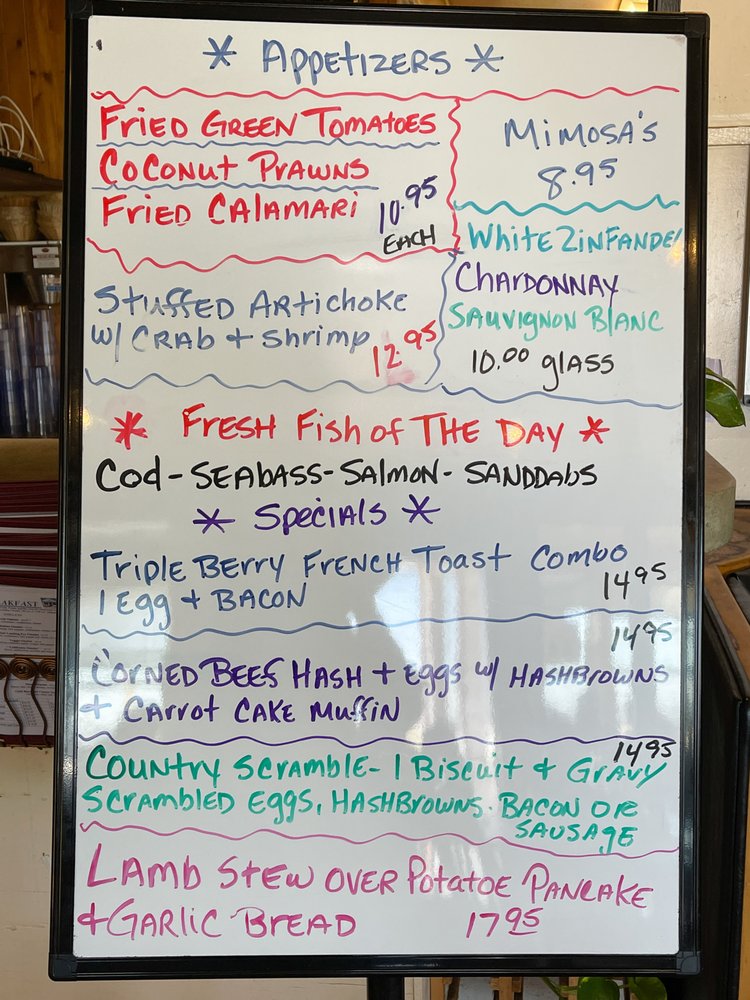 * Appetizers *
Fried Green Tomatoes
Coconut Prawns
Fried Calamari 10.95
Each
Stuffed Artichoke
w/ Crab + Shrimp 12.95
Mimosa's
8.95
White Zinfandel
Chardonnay
Sauvignon Blanc
10.00 glass
* Fresh Fish of The Day *
Cod - Seabass - Salmon - Sanddabs
* Specials *
Triple Berry French Toast Combo
1 Egg + Bacon 14.95
14.95
Corned Beef Hash + Eggs w/ Hashbrowns
+ Carrot Cake Muffin
14.95
Country Scramble - 1 Biscuit + Gravy
Scrambled Eggs, Hashbrowns. Bacon or
Sausage
Lamb Stew over Potatoe Pancake
+ Garlic Bread 17.95